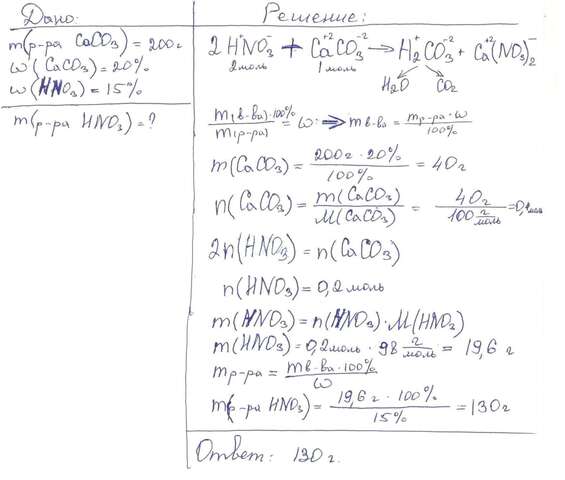 Дано:
m(р-ра CaCO₃) = 200г
ω(CaCO₃) = 20%
ω(HNO₃) = 15%
m(р-ра HNO₃) = ?
Решение:
2HNO₃ + CaCO₃ → H₂CO₃ + Ca(NO₃)₂
2моль 1моль
H₂O CO₂
m(в-ва)·100% / m(р-ра) = ω ⇒ m в-ва = mр-ра·ω / 100%
m(CaCO₃) = 200г · 20% / 100% = 40г
n(CaCO₃) = m(CaCO₃) / M(CaCO₃) = 40г / 100 г/моль =
2n(HNO₃) = n(CaCO₃)
n(HNO₃) = 0,2моль
m(HNO₃) = n(HNO₃)·M(HNO₃)
m(HNO₃) = 0,2моль · 98 г/моль = 19,6 г
mр-ра = mв-ва·100% / ω
m(р-ра HNO₃) = 19,6 г · 100% / 15% = 130г
Ответ: 130 г.